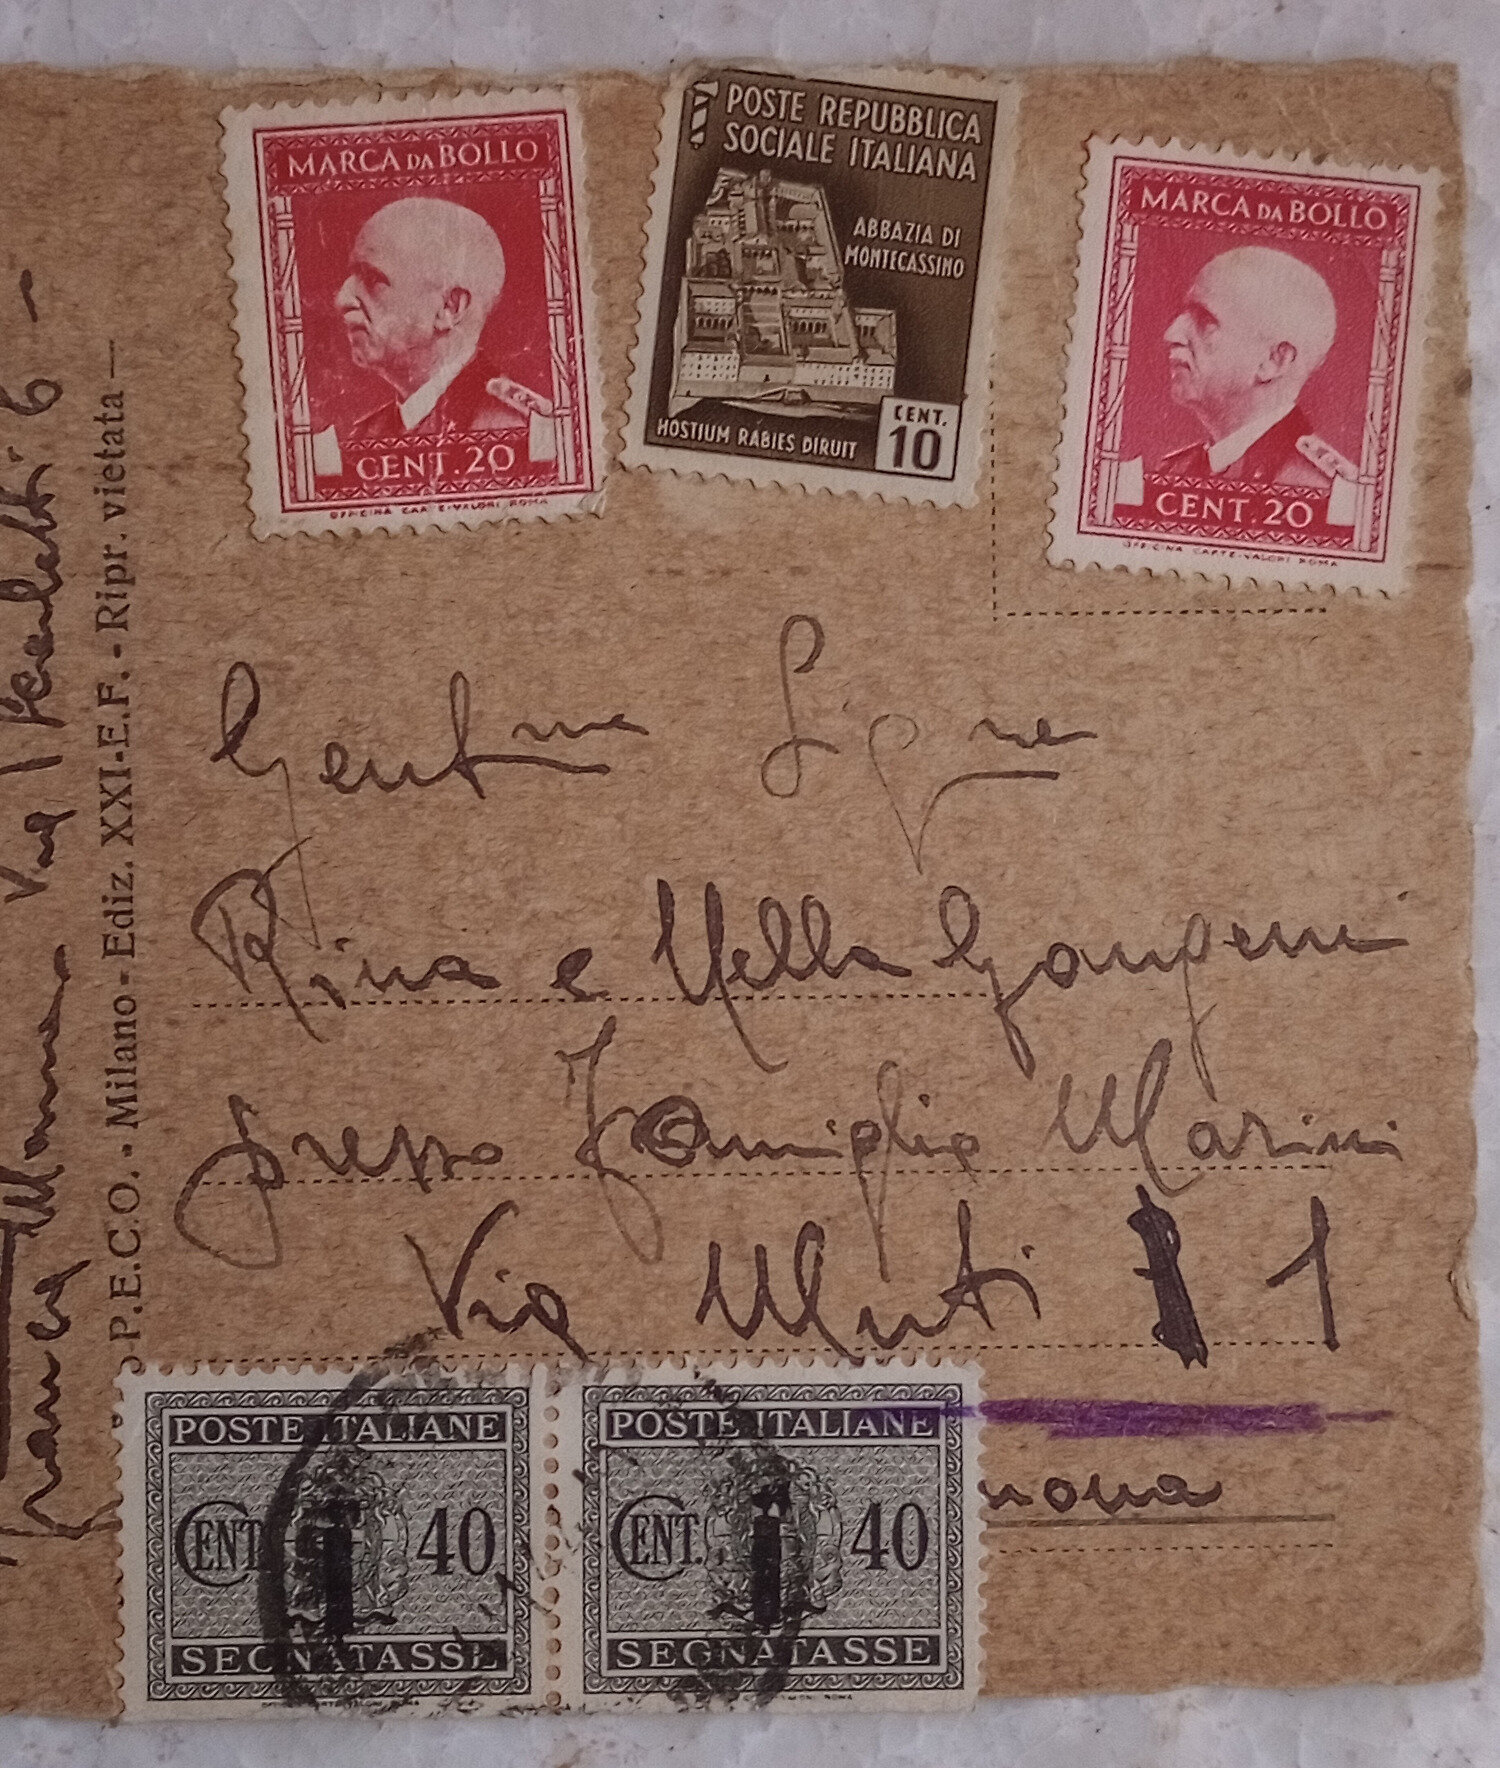 MARCA DA BOLLO
CENT. 20
OFFICINA CARTE-VALORI ROMA
POSTE REPUBBLICA
SOCIALE ITALIANA
ABBAZIA DI
MONTECASSINO
HOSTIUM RABIES DIRUIT
CENT.
10
MARCA DA BOLLO
CENT. 20
OFFICINA CARTE-VALORI ROMA
Gentme Signe
Rina e Nella
presso Famiglia Marini
Via Muti 1
nona
POSTE ITALIANE
CENT. 40
SEGNATASSE
POSTE ITALIANE
CENT. 40
SEGNATASSE
P.E.C.O. - Milano - Ediz. XXI-E.F. - Ripr. vietata
Via 6 -